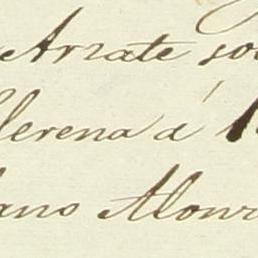 Arzate so
llerena a 1
ano Alonz